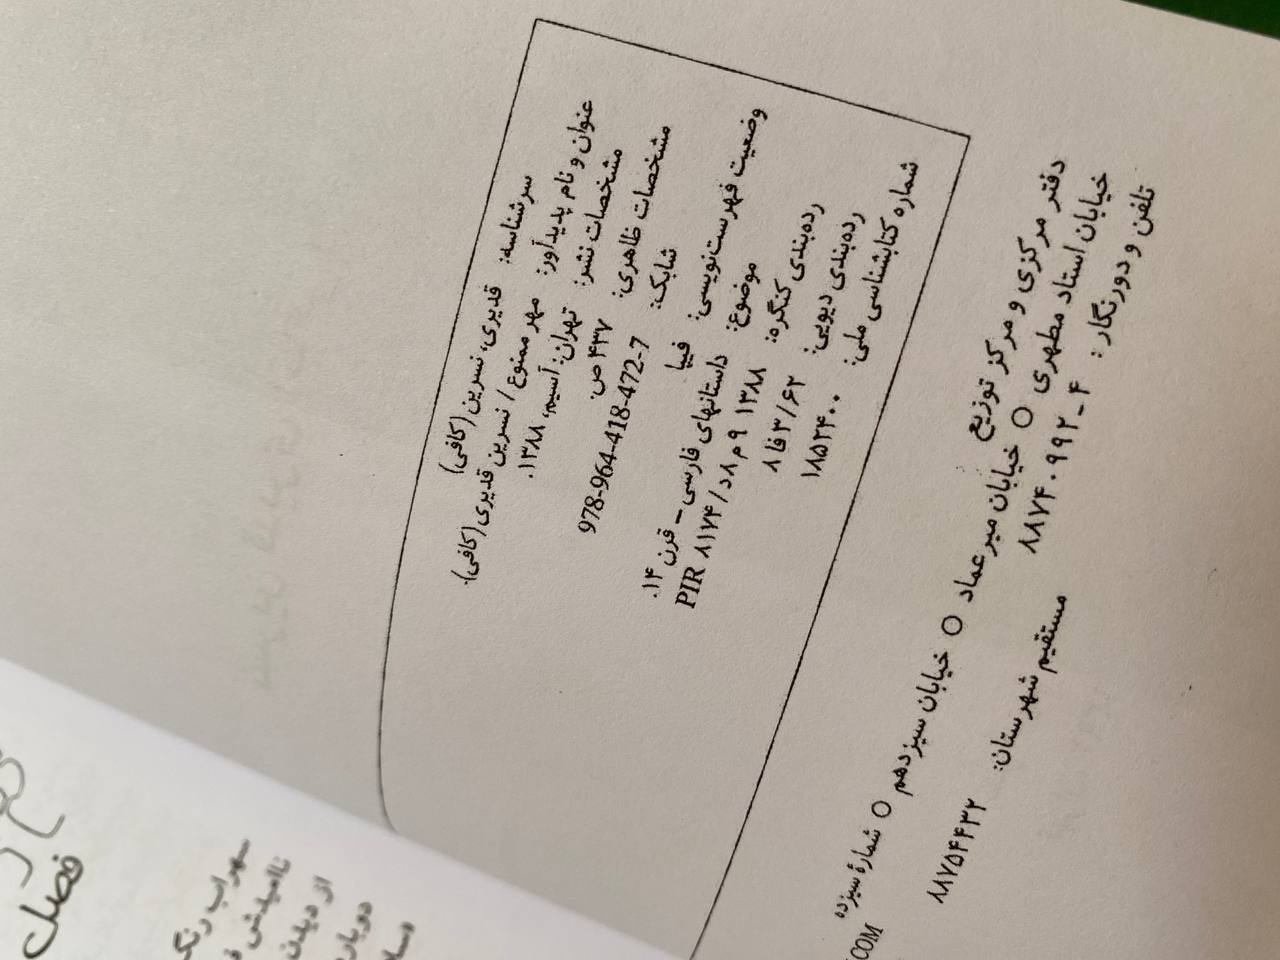 سرشناسه: قدیری، نسرین (کافی)
عنوان و نام پدیدآور: مهر ممنوع / نسرین قدیری (کافی).
مشخصات نشر: تهران: آسیم، ۱۳۸۸.
مشخصات ظاهری: ۴۳۷ ص.
شابک: 978-964-418-472-7
وضعیت فهرست‌نویسی: فیپا
موضوع: داستانهای فارسی - قرن ۱۴.
رده‌بندی کنگره: PIR ۸۱۷۴/د۸ م۹ ۱۳۸۸
رده‌بندی دیویی: ۸فا۳/۶۲
شماره کتابشناسی ملی: ۱۸۵۲۴۰۰
دفتر مرکزی و مرکز توزیع
خیابان استاد مطهری ○ خیابان میرعماد ○ خیابان سیزدهم ○ شمارهٔ سیزده
تلفن و دورنگار: ۴-۸۸۷۴۰۹۹۲ مستقیم شهرستان: ۸۸۷۵۴۴۳۲
.COM
فصل
سهراب رنگ
ناامیدش
از دیدن